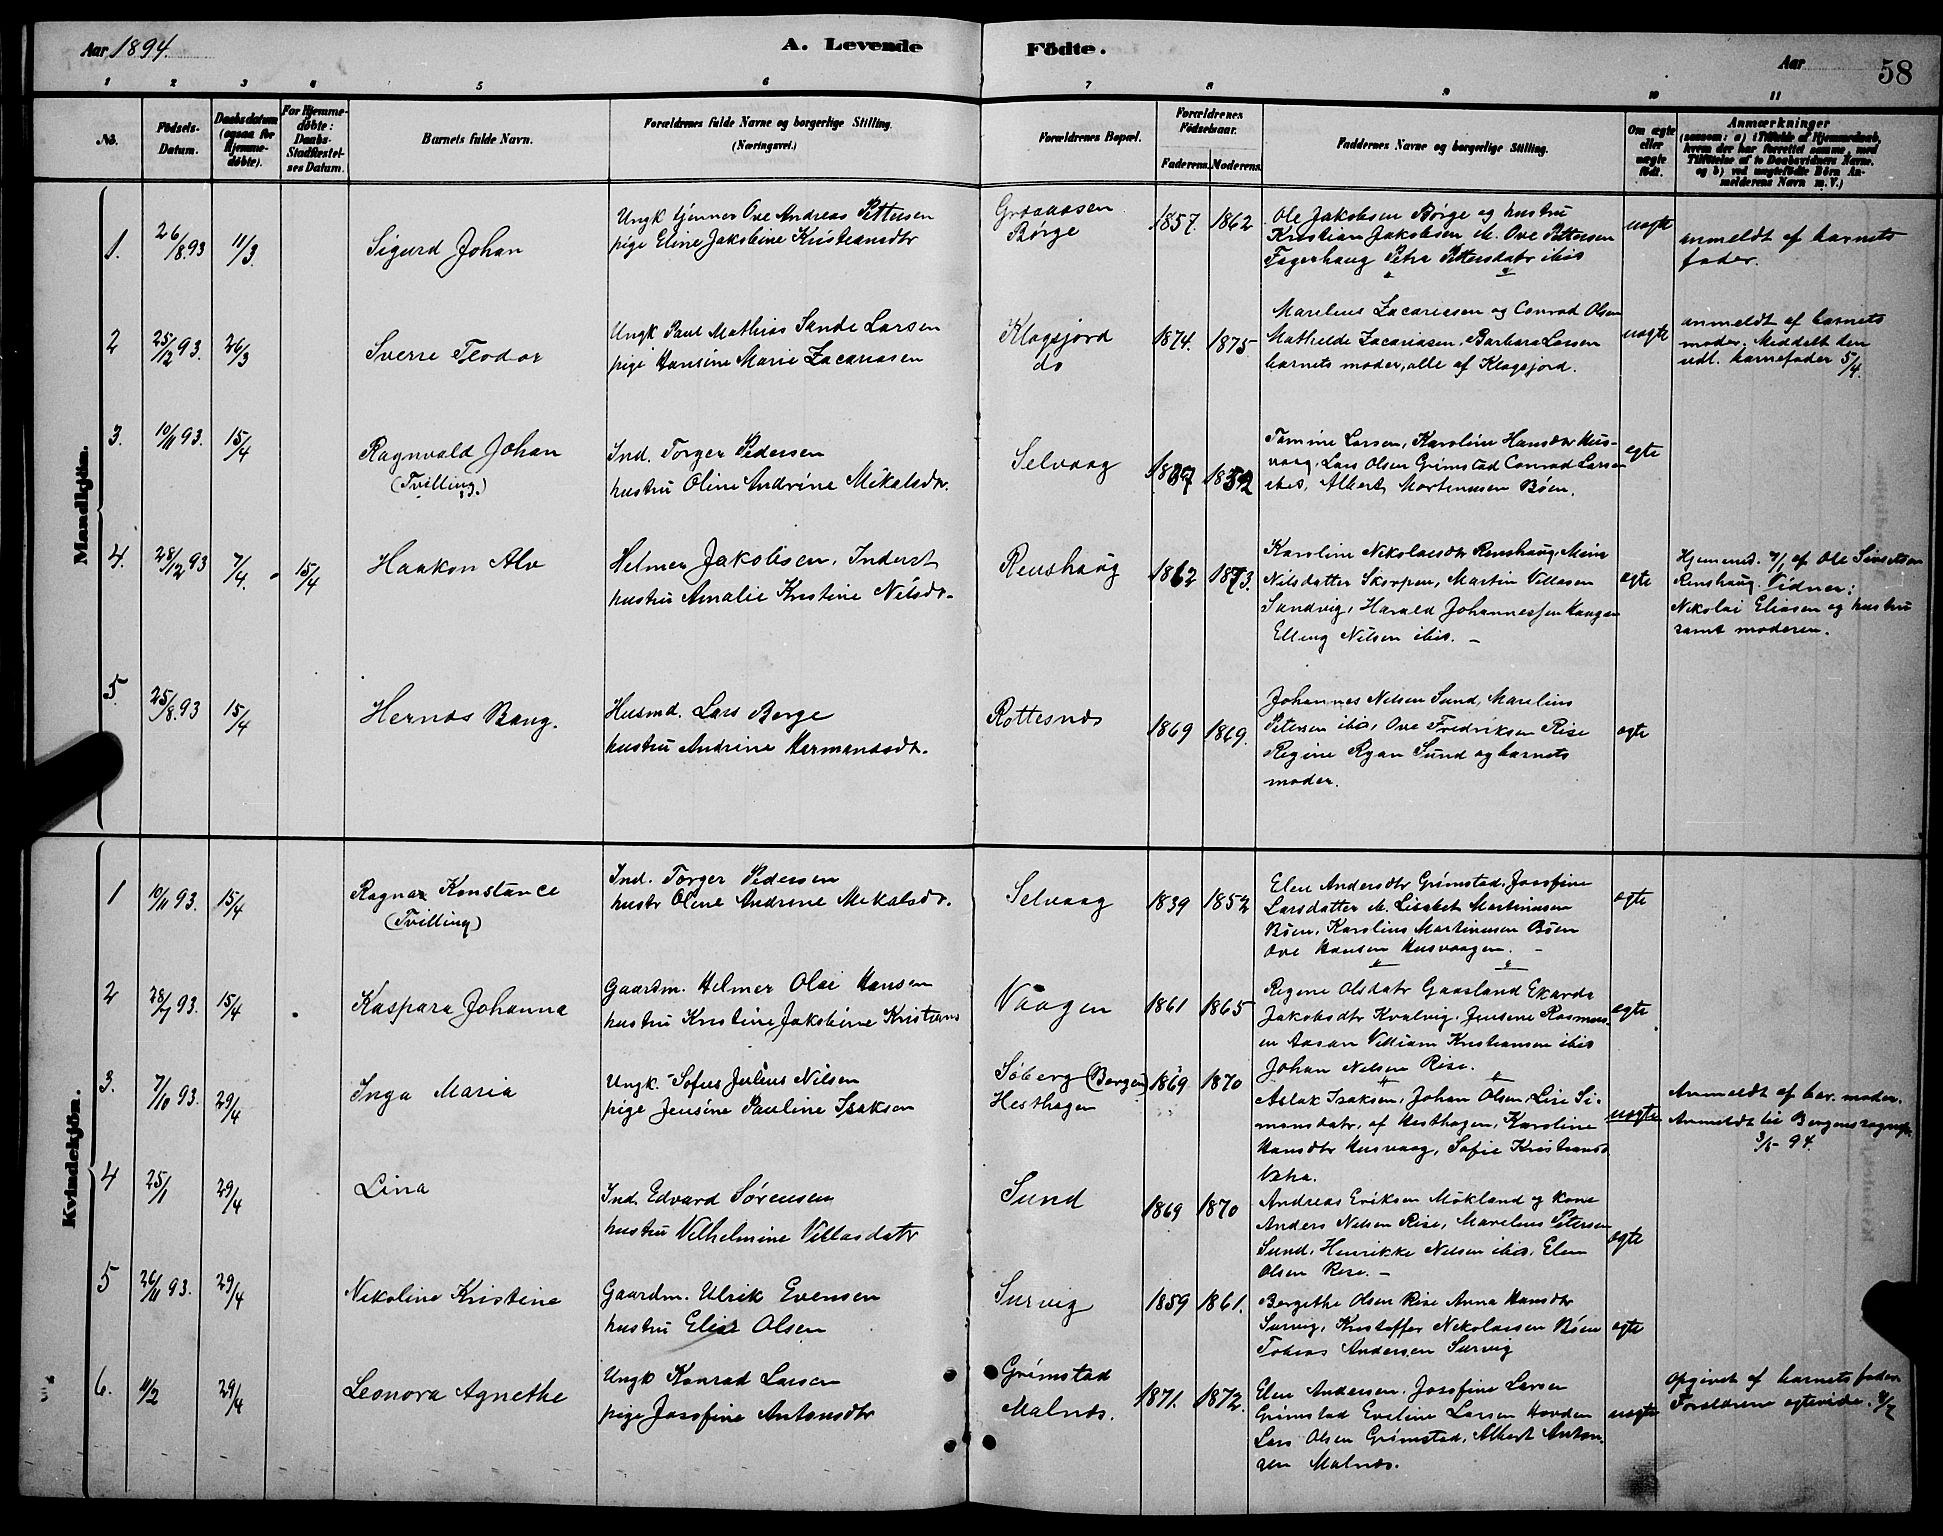 Aar 1894.
A. Levende Födte.
Aar
58
1 2 3 4 5 6 7 8 9 10 11
No.
Födsels-Datum.
Daabsdatum (ogsaa for Hjemme-døbte).
For Hjemme-døbte: Daabs-Stadfæstel-ses Datum.
Barnets fulde Navn.
Forældrenes fulde Navne og borgerlige Stilling. (Næringsvei.)
Forældrenes Bopæl.
Forældrenes Födselsaar.
Faderens. Moderens.
Faddernes Navne og borgerlige Stilling.
Om ægte eller uægte födt.
Anmærkninger
(saasom: a) i Tilfælde af Hjemmedaab,
hvem der har forrettet samme, med
Tilföielse af to Daabsvidners Navne.
og b) ved uægtefödte Börn An-
melderens Navn m. V.)
Mandkjön.
1. 26/8.93 11/3. Sigurd Johan
Ungk tjener Ove Andreas Pettersen
pige Eline Jakobine Kristiansdtr
Graaaasen
Børge
1857. 1862
Ole Jakobsen Børge og hustru
Kristian Jakobsen ib. Ove Pettersen
Fagerhaug Petra Pettersdatr ibid
uægte
anmeldt af barnets
fader.
2 25/12 93. 26/3 Sverre Teodor
Ungk Paul Mathias Sande Larsen
pige Hansine Marie Zacariasen
Klogsjord
do
1874. 1875
Marelius Zacariasen og Conrad Olsen
Mathilde Zacariasen, Barbara Larsen
barnets moder, alle af Klogsjord.
uægte
anmeldt af barnets
moder. Meddelt den
udl. barnefader 5/4.
3. 10/11 93. 15/4 Ragnvald Johan
(Tvilling)
Ind. Torger Pedersen
hustru Oline Andrine Mikalsdr.
Selvaag
1852
Tomine Larsen, Karoline Hansdtr Hus-
vaag, Lars Olsen Grimstad Conrad Larsen
ibid, Albert Martinusen Bøen.
ægte
4. 28/12 93 7/4. 15/4 Haakon Alv
Helmer Jakobsen, Inderst
hustru Amalie Kristine Nilsdr.
Renshaug
1862 1873.
Karoline Nikolaisdtr Renshaug, Mina
Nilsdatter Skorpen, Martin Villasen
Sandvig, Harald Johannessen Haugen
Elling Nilsen ibid. –
ægte
Hjemmed. 7/1 af Ole Sivertsen
Renshaug. Vidner:
Nikolai Eliasen og hustru
samt moderen.
5. 25/8.93 15/4 Hernos Bang.
Husmd. Lars Berge
hustru Andrine Hermandsdr.
Rottesnes
1869 1869.
Johannes Nilsen Sund, Marelius
Petersen ibid, Ove Fredriksen Rise
Regine Ryan Sund og barnets
moder.
ægte
Kvindekjön.
1 10/11 93. 15/4 Ragna Konstance
(Tvilling)
Ind. Torger Pedersen
hustr Oline Andrine Mikalsdr.
Selvaag
1839 1852
Elen Andersdtr Grimstad, Josefine
Larsdatter ib. Lisabet Martinusen
Bøen, Karolius Martinusen Bøen
Ove Hansen Husvaagen. –
ægte
2 28/7 93. 15/4 Kaspara Johanna
Gaardm. Helmer Olai Hansen
hustru Kristine Jakobine Kristians
Vaagen
1861 1865
Regine Olsdatr Gaasland Ekarda
Jakobsdtr Kvalvig, Jensine Rasmus-
en Aasan Villiam Kristiansen ibid
Johan Nilsen Rise.
ægte
3. 7/10 93. 29/4 Inga Maria
Ungk. Sofus Julius Nilsen
pige Jensine Pauline Isaksen
Søberg (Borgen)
Hesthagen
1869 1870
Aslak Isaksen, Johan Olsen, Lise Si-
monsdatr, af Hesthagen, Karoline
Hansdtr Husvaag, Sofie Kristiansd
uægte
Anmeldt af bar. moder.
Anmeldt til Borgens sognepr.
3/5 94.
4 25/1 29/4 Lina
Ind. Edvard Sørensen
hustru Vilhelmine Villasdatr
Sund
1869 1870
Andreas Eriksen Møkland og kone
Anders Nilsen Rise, Marelius Petersen
Sund, Henrikke Nilsen ibid, Elen
Olsen Rise. –
ægte
5 26/11 93. 29/4 Nikoline Kristine
Gaardm. Ulrik Evensen
hustru Elise Olsen
Survig
1859 1861.
Bergithe Olsen Rise Anna Hansdtr
Survig, Kristoffer Nikolaisen Bøen
Tobias Andersen Survig
ægte
6. 11/2 29/4 Leonora Agnethe
Ungk Konrad Larsen
pige Josefine Antonsdtr
Grimstad
Malnes.
1871. 1872.
Elen Andersen, Josefine Larsen
Grimstad Eveline Larsen Hovden
Lars Olsen Grimstad, Albert Anton-
sen Malnes.
uægte
opgivet af barnets fader
Forældrene ægteviede.